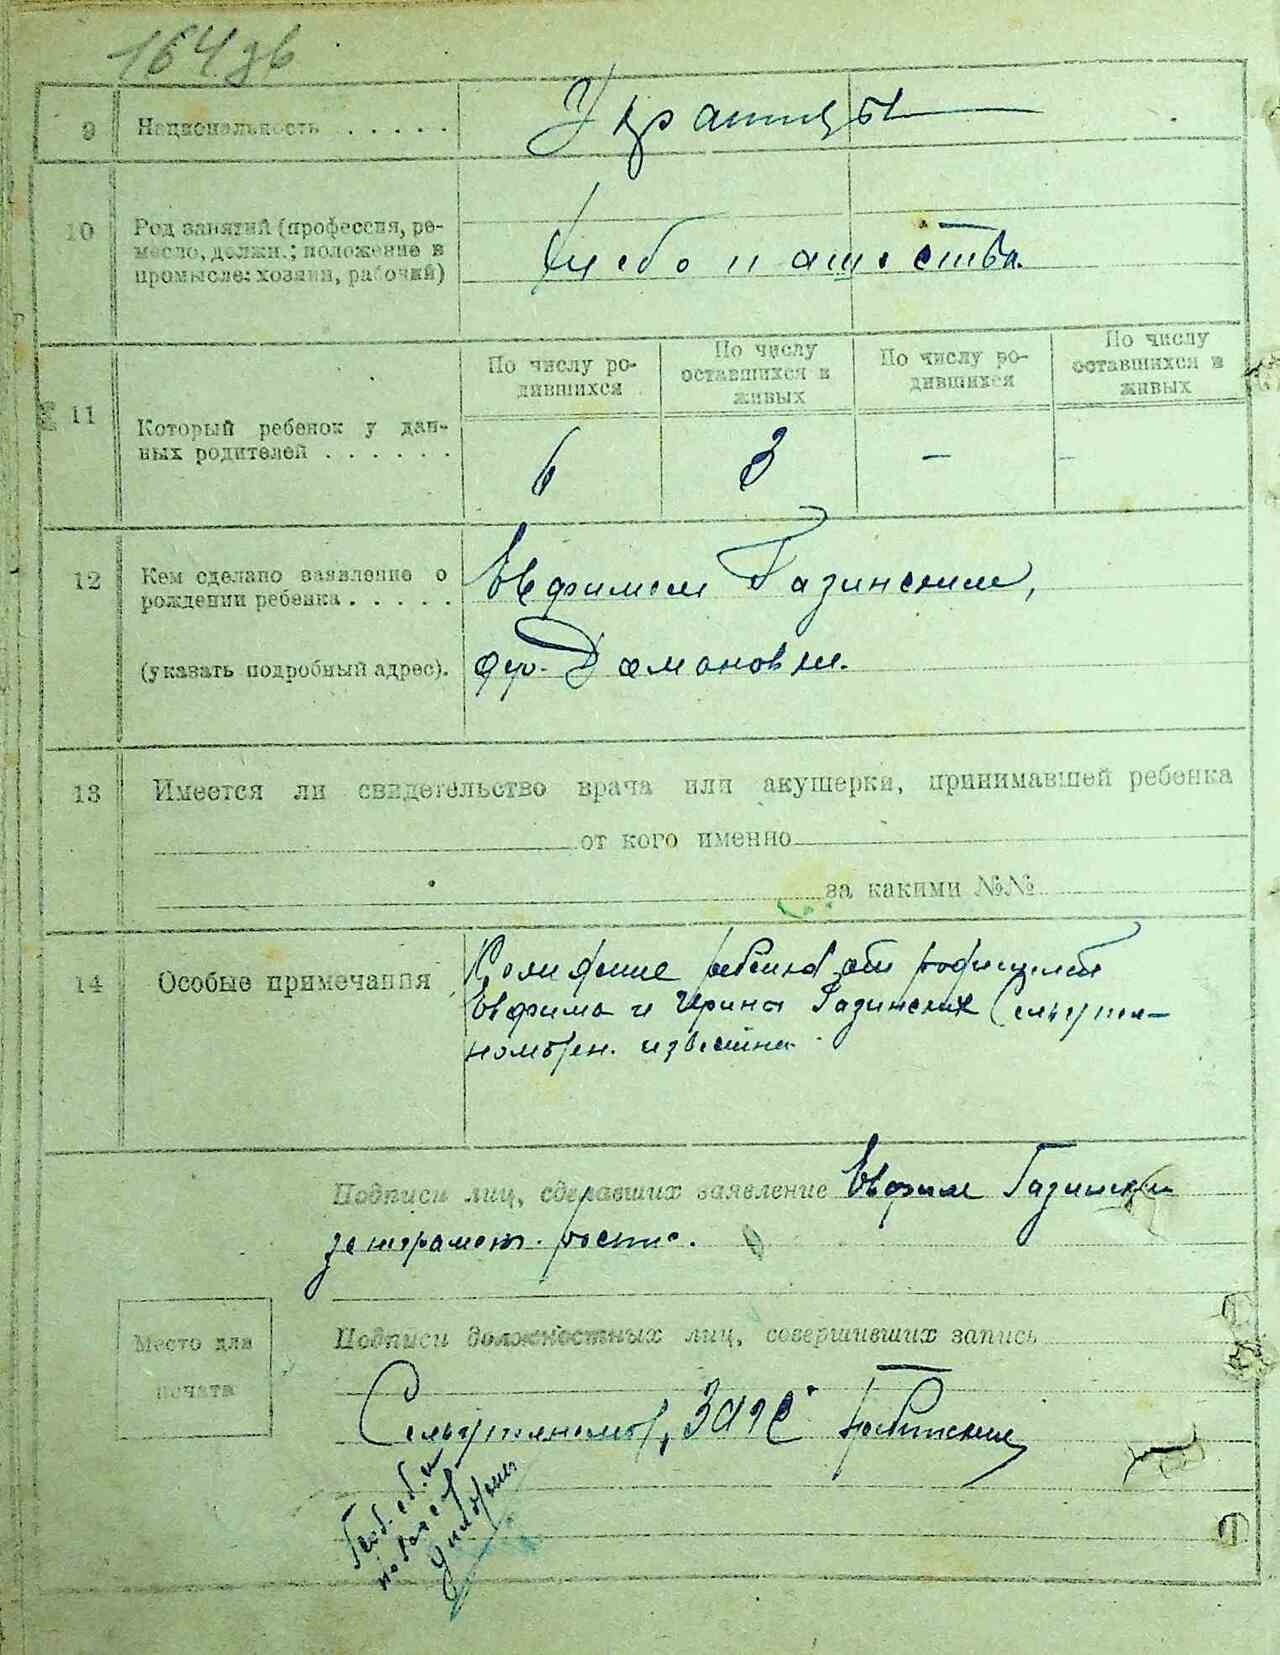 164 зв
9 Национальность . . . . . Украинцы
10 Род занятий (профессия, ре-
месло, должн.; положение в
промысле: хозяин, рабочий)
Хлебопашества.
По числу ро-
дившихся
По числу
оставшихся в
живых
По числу ро-
дившихся
По числу
оставшихся в
живых
11 Который ребенок у дан-
ных родителей . . . . . .
6 3 – –
12 Кем сделано заявление о
рождении ребенка . . . . .
(указать подробный адрес).
Евфимом Газинским,
дер. Домановки.
13 Имеется ли свидетельство врача или акушерки, принимавшей ребенка
от кого именно
за какими №№
14 Особые примечания
Рождение ребенка от родителей
Евфима и Ирины Газинских Сельупол-
номочен. известно.
Подписи лиц, сделавших заявление Евфим Газинский
неграмотн.
Место для
печати
Подписи должностных лиц, совершивших запись
Сельуполномоч, ЗАГС